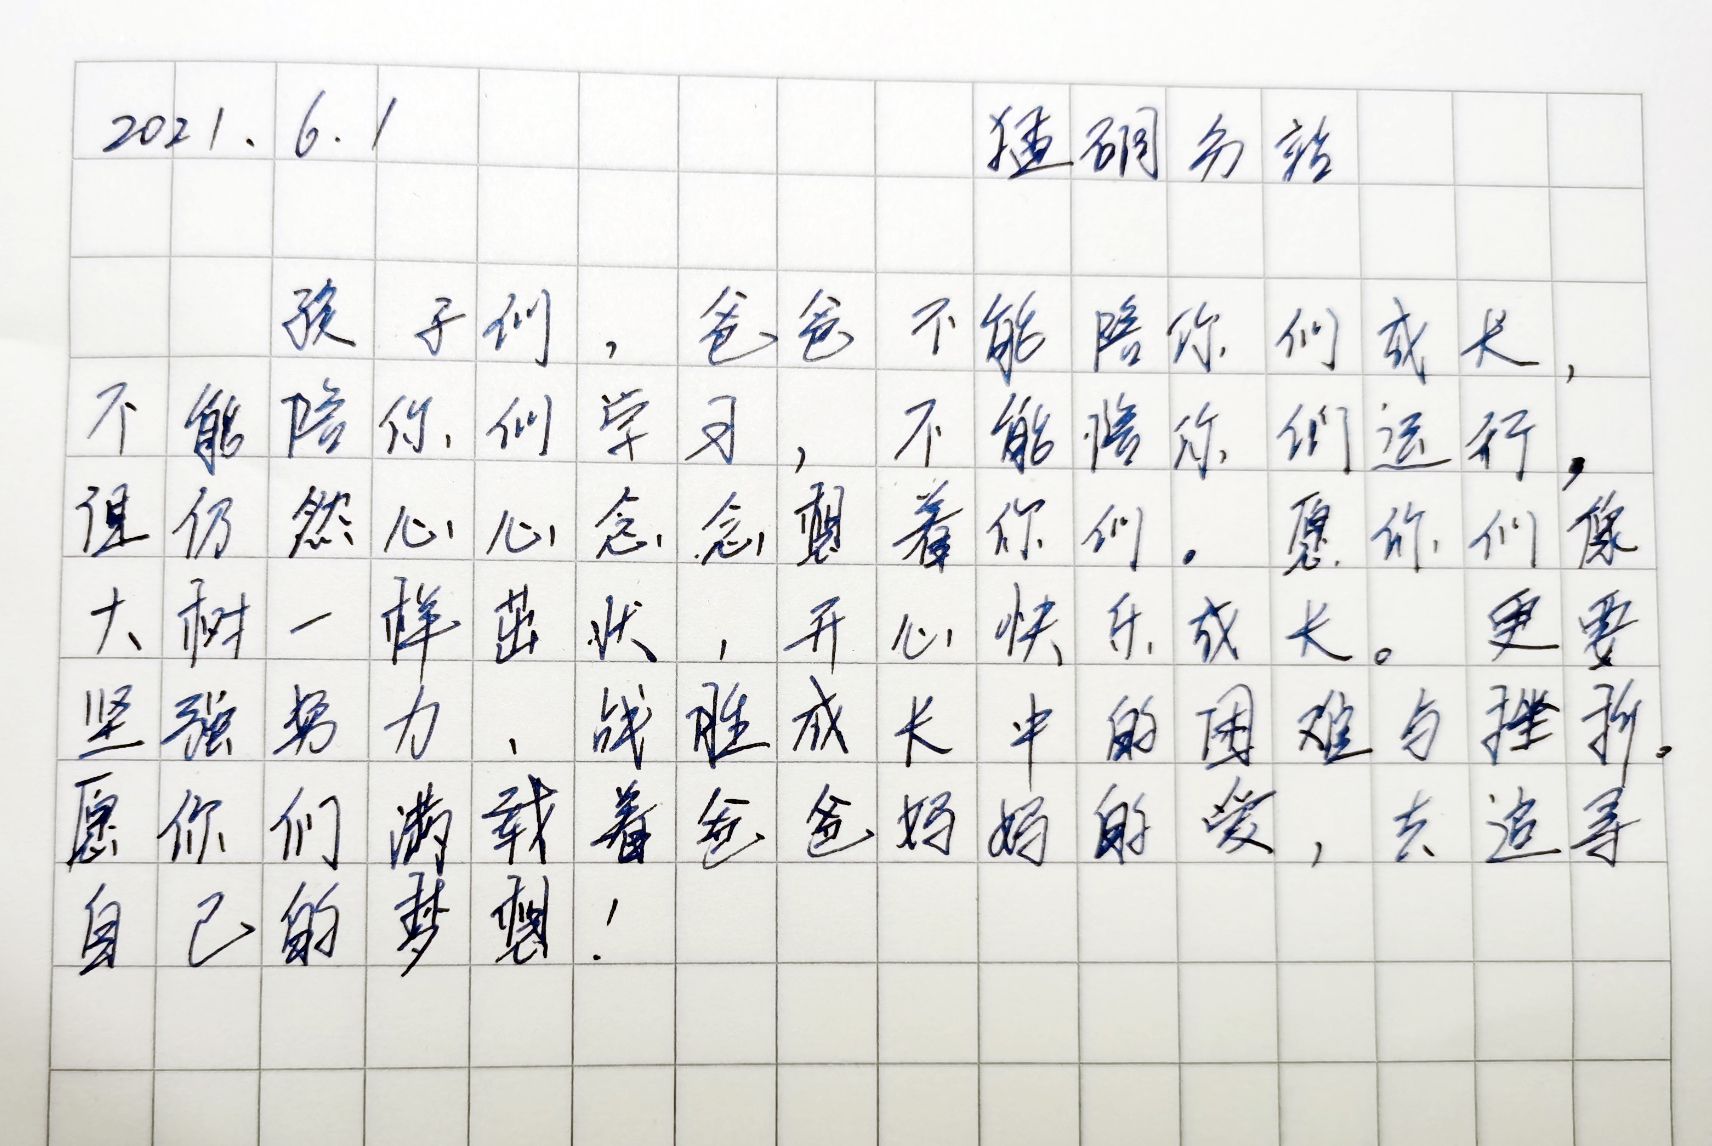 2021.6.1 猛硐分站
孩子们，爸爸不能陪你们成长，
不能陪你们学习，不能陪你们远行，
但仍然心心念念想着你们。愿你们像
大树一样茁状，开心快乐成长。更要
坚强努力、战胜成长中的困难与挫折。
愿你们满载着爸爸妈妈的爱，去追寻
自己的梦想！